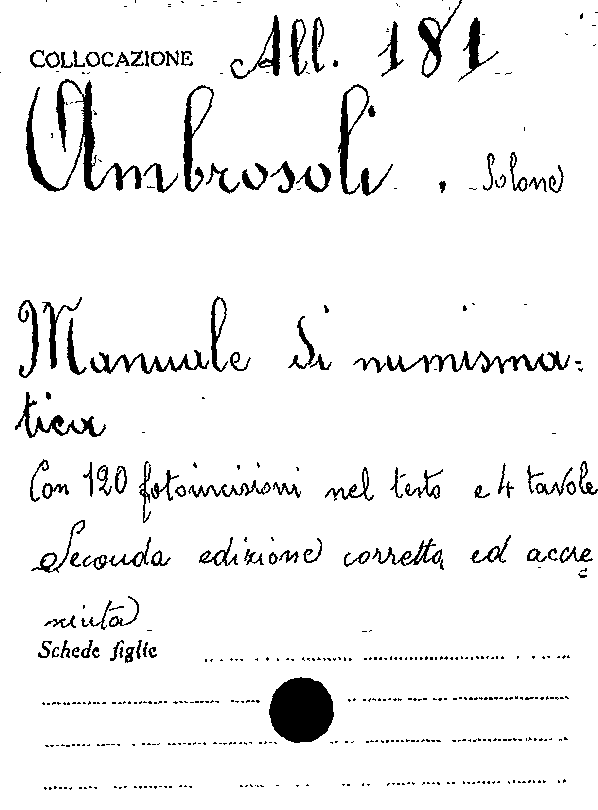 COLLOCAZIONE All. 181
Ambrosoli. Solone
Manuale di numisma=
tica
Con 120 fotoincisioni nel testo e 4 tavole
Seconda edizione corretta ed accre
sciuta
Schede figlie